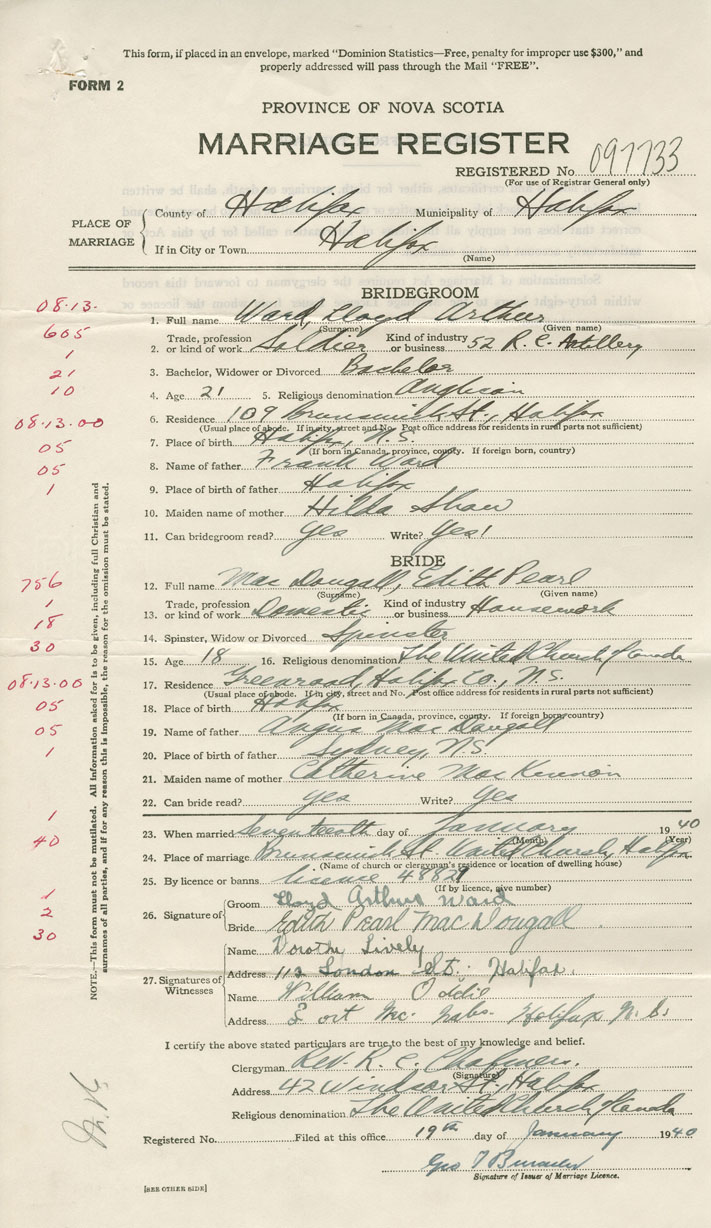 This form, if placed in an envelope, marked "Dominion Statistics—Free, penalty for improper use $300," and
properly addressed will pass through the Mail "FREE".
FORM 2
PROVINCE OF NOVA SCOTIA
MARRIAGE REGISTER
REGISTERED No. 097733
(For use of Registrar General only)
PLACE OF MARRIAGE
County of Halifax Municipality of Halifax
If in City or Town Halifax
(Name)
BRIDEGROOM
08.13.
1. Full name Ward, Lloyd Arthur
(Surname) (Given name)
605
2. Trade, profession or kind of work Soldier Kind of industry or business 52 R. C. Artillery
1
3. Bachelor, Widower or Divorced Bachelor
21
4. Age 21 5. Religious denomination Anglican
10
6. Residence 109 Brunswick St., Halifax
08.13.00
(Usual place of abode. If in city, street and No. Post office address for residents in rural parts not sufficient)
7. Place of birth Halifax, N.S.
05
(If born in Canada, province, county. If foreign born, country)
8. Name of father Frank Ward
05
9. Place of birth of father Halifax
1
10. Maiden name of mother Hilda Shaw
11. Can bridegroom read? yes Write? Yes!
BRIDE
12. Full name MacDougall, Edith Pearl
756
(Surname) (Given name)
1
13. Trade, profession or kind of work Domestic Kind of industry or business Housework
18
14. Spinster, Widow or Divorced Spinster
30
15. Age 18 16. Religious denomination The United Church of Canada
17. Residence Greenwood, Halifax Co., N.S.
08.13.00
(Usual place of abode. If in city, street and No. Post office address for residents in rural parts not sufficient)
18. Place of birth Halifax
05
(If born in Canada, province, county. If foreign born, country)
19. Name of father Angus MacDougall
05
20. Place of birth of father Sydney, N.S.
1
21. Maiden name of mother Catherine MacKinnon
22. Can bride read? yes Write? Yes
1
23. When married Seventeenth day of January 1940
(Month) (Year)
40
24. Place of marriage Brunswick St. United Church, Halifax
(Name of church or clergyman's residence or location of dwelling house)
25. By licence or banns licence 48829
(If by licence, give number)
1
26. Signature of
Groom Lloyd Arthur Ward
2
Bride Edith Pearl MacDougall
30
27. Signatures of Witnesses
Name Dorothy Lively
Address 112 London St. Halifax.
Name William Oddie
Address Fort Mc Nabs. Halifax N.S.
NOTE.—This form must not be mutilated. All information asked for is to be given, including full Christian and
surnames of all parties, and if for any reason this is impossible, the reason for the omission must be stated.
I certify the above stated particulars are true to the best of my knowledge and belief.
Clergyman Rev. R. C. Chalmers.
(Signature)
Address 42 Windsor St., Halifax
Religious denomination The United Church of Canada
Registered No. Filed at this office 19th day of January 1940
Geo
Signature of Issuer of Marriage Licence.
[SEE OTHER SIDE]